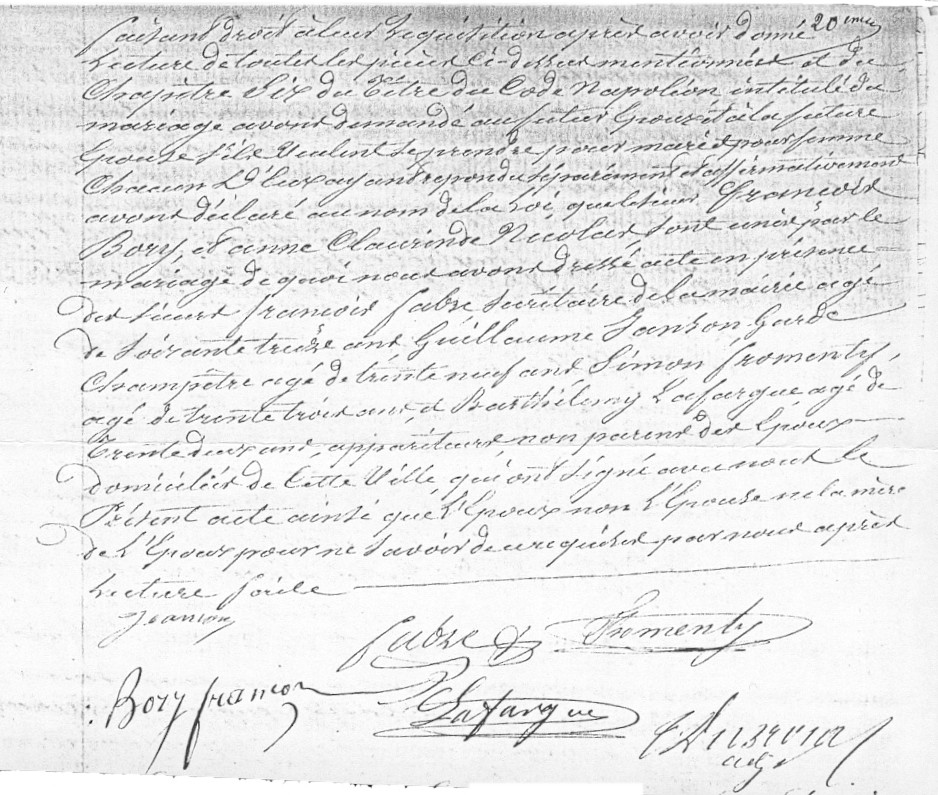 faisant droit à leur réquisition après avoir donné 20 eme
Lecture de toutes les pièces ci-dessus mentionnées et du
Chapitre Six du titre du Code Napoléon intitulé du
mariage avons demandé au futur Epoux et à la future
Epouse s'ils veulent se prendre pour mari et pour femme
Chacun D'Eux ayant repondu séparément et affirmativement
avons déclaré au nom de la Loi que le sieur François
Bory, et anne Claurinde Nicolas sont unis par le
mariage de quoi nous avons dressé acte en présence
des sieurs françois fabre Secrétaire de la mairie agé
de Soixante treize ans Guillaume Janson Garde
Champêtre agé de trente neuf ans Simon fromenty,
agé de trente trois ans, et Barthélemy Lafargue agé de
trente deux ans, appariteurs, non parens des Epoux
domiciliés de Cette Ville, qui ont signé avec nous le
Présent acte ainsi que L'Epoux non L'Epouse ne la mère
de L'Epoux pour ne savoir de ce requises par nous après
Lecture faite
Jeanson
fabre fromenty
Bory françois Lafargue
adj